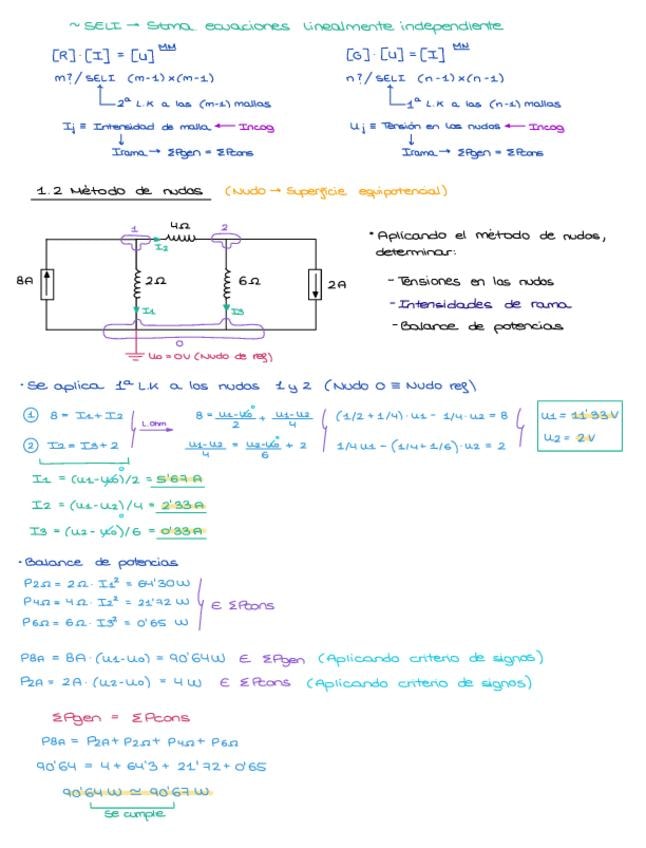 ~ SELI → Stma ecuaciones linealmente independiente
[R]·[I] = [U] MM
m?/ SELI (m-1)x(m-1)
2ª L.K a las (m-1) mallas
Ij ≡ Intensidad de malla ← Incog
Irama → ΣPgen = ΣPcons
[G]·[U] = [I] MN
n?/ SELI (n-1)x(n-1)
1ª L.K a las (n-1) mallas
Uj ≡ Tensión en los nudos ← Incog
Irama → ΣPgen = ΣPcons
1.2 Método de nudos (Nudo → Superficie equipotencial)
1 4Ω 2
I2
8A 2Ω 6Ω 2A
I1 I3
0
U0 = 0V (Nudo de ref)
· Aplicando el método de nudos,
determinar:
- Tensiones en los nudos
- Intensidades de rama
- Balance de potencias
· Se aplica 1ª L.K a los nudos 1 y 2 (Nudo 0 ≡ Nudo ref)
① 8 = I1 + I2
② I2 = I3 + 2
L.Ohm
8 = (u1-u0)/2 + (u1-u2)/4
(u1-u2)/4 = (u2-u0)/6 + 2
(1/2 + 1/4)·u1 - 1/4·u2 = 8
1/4 u1 - (1/4 + 1/6)·u2 = 2
u1 = 11'33 V
u2 = 2 V
I1 = (u1-u0)/2 = 5'67 A
I2 = (u1-u2)/4 = 2'33 A
I3 = (u2-u0)/6 = 0'33 A
· Balance de potencias
P2Ω = 2Ω · I1² = 64'30 W
P4Ω = 4Ω · I2² = 21'72 W
P6Ω = 6Ω · I3² = 0'65 W
∈ ΣPcons
P8A = 8A·(u1-u0) = 90'64 W ∈ ΣPgen (Aplicando criterio de signos)
P2A = 2A·(u2-u0) = 4 W ∈ ΣPcons (Aplicando criterio de signos)
ΣPgen = ΣPcons
P8A = P2A + P2Ω + P4Ω + P6Ω
90'64 = 4 + 64'3 + 21'72 + 0'65
90'64 W ≃ 90'67 W
Se cumple